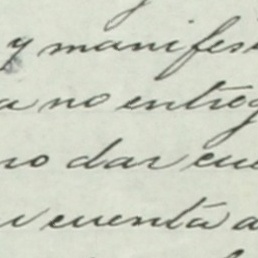 y manifes
a no entreg
no dar cue
cuenta a